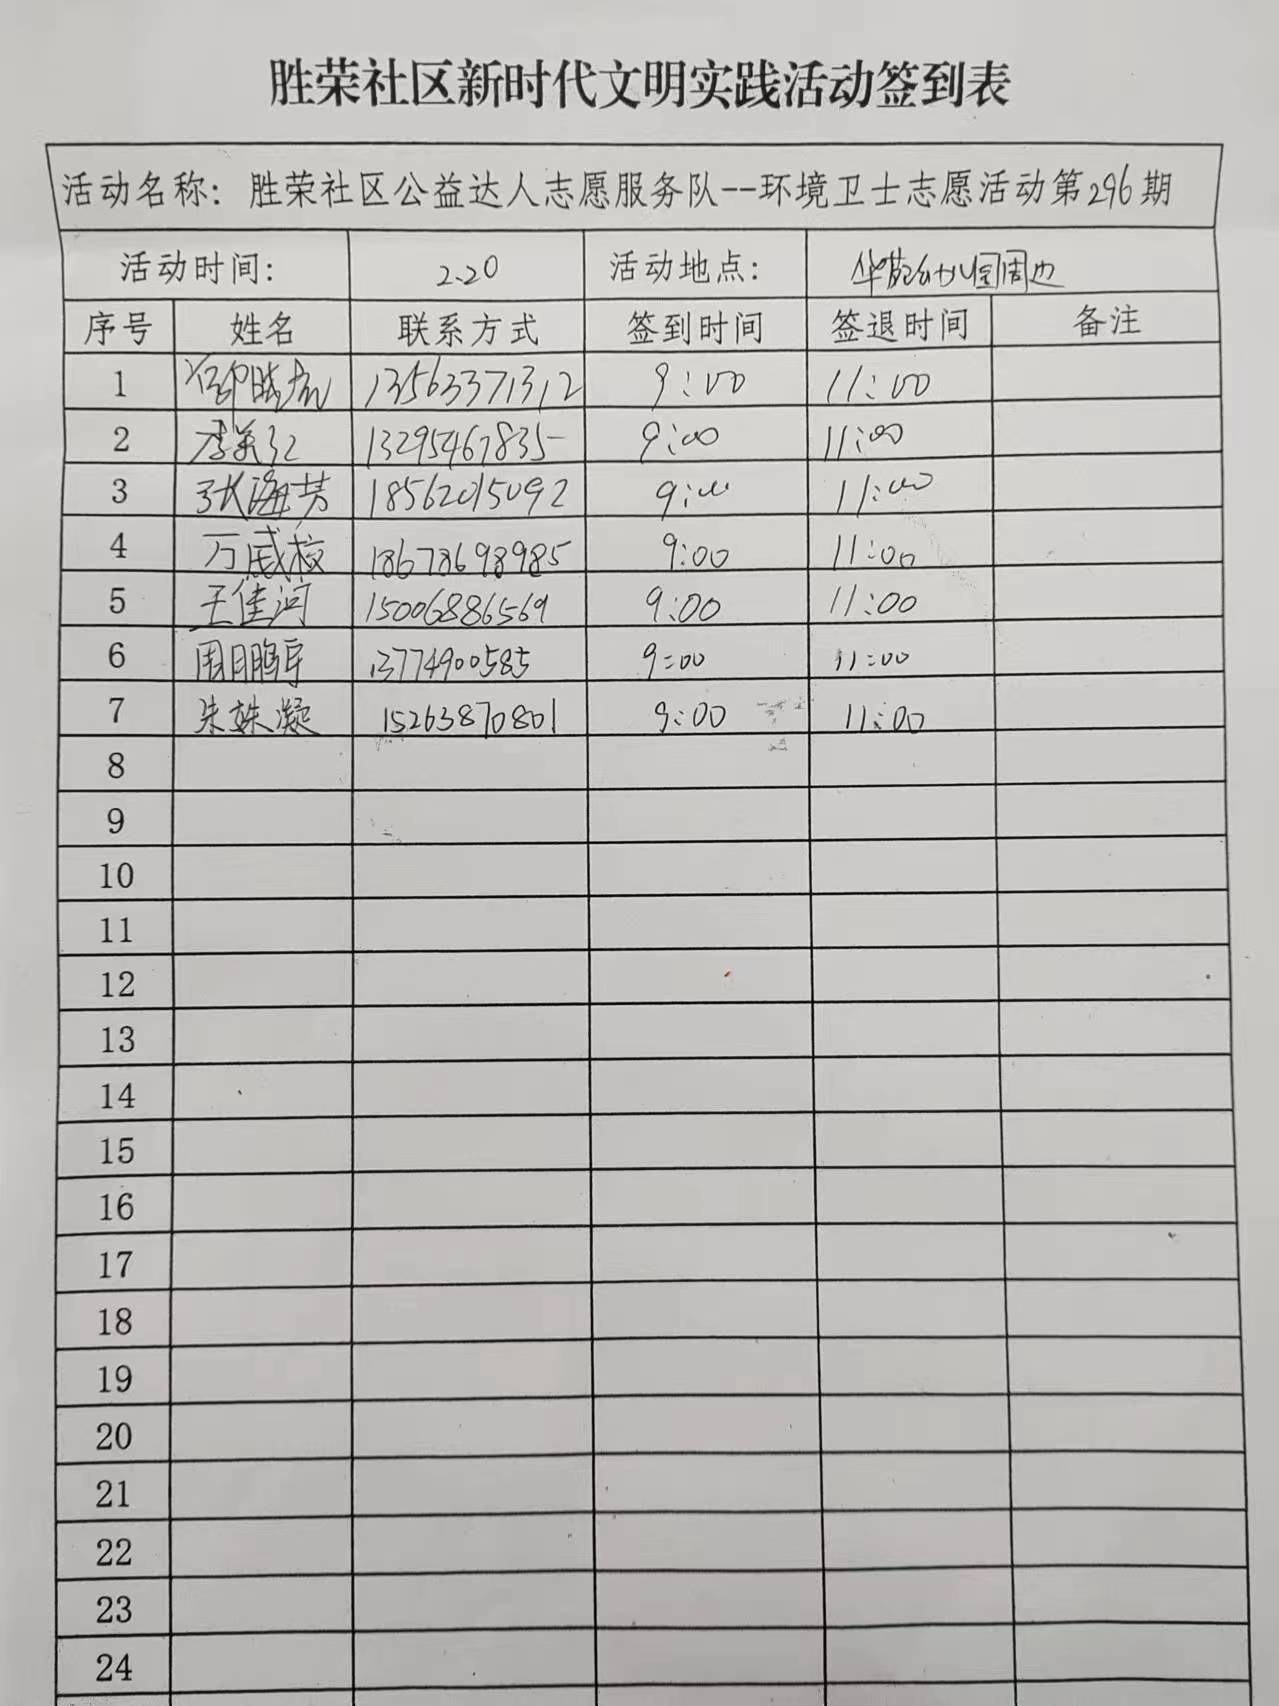 胜荣社区新时代文明实践活动签到表
活动名称：胜荣社区公益达人志愿服务队--环境卫士志愿活动第296期
活动时间： 2.20 活动地点： 幼儿园周边
序号 姓名 联系方式 签到时间 签退时间 备注
1 13563371312 9:00 11:00
2 13295467835 9:00 11:00
3 张海芳 18562015092 9:00 11:00
4 万威 18678698985 9:00 11:00
5 王佳河 15006886569 9:00 11:00
6 13774900585 9:00 11:00
7 朱姝凝 15263870801 9:00 11:00
8
9
10
11
12
13
14
15
16
17
18
19
20
21
22
23
24